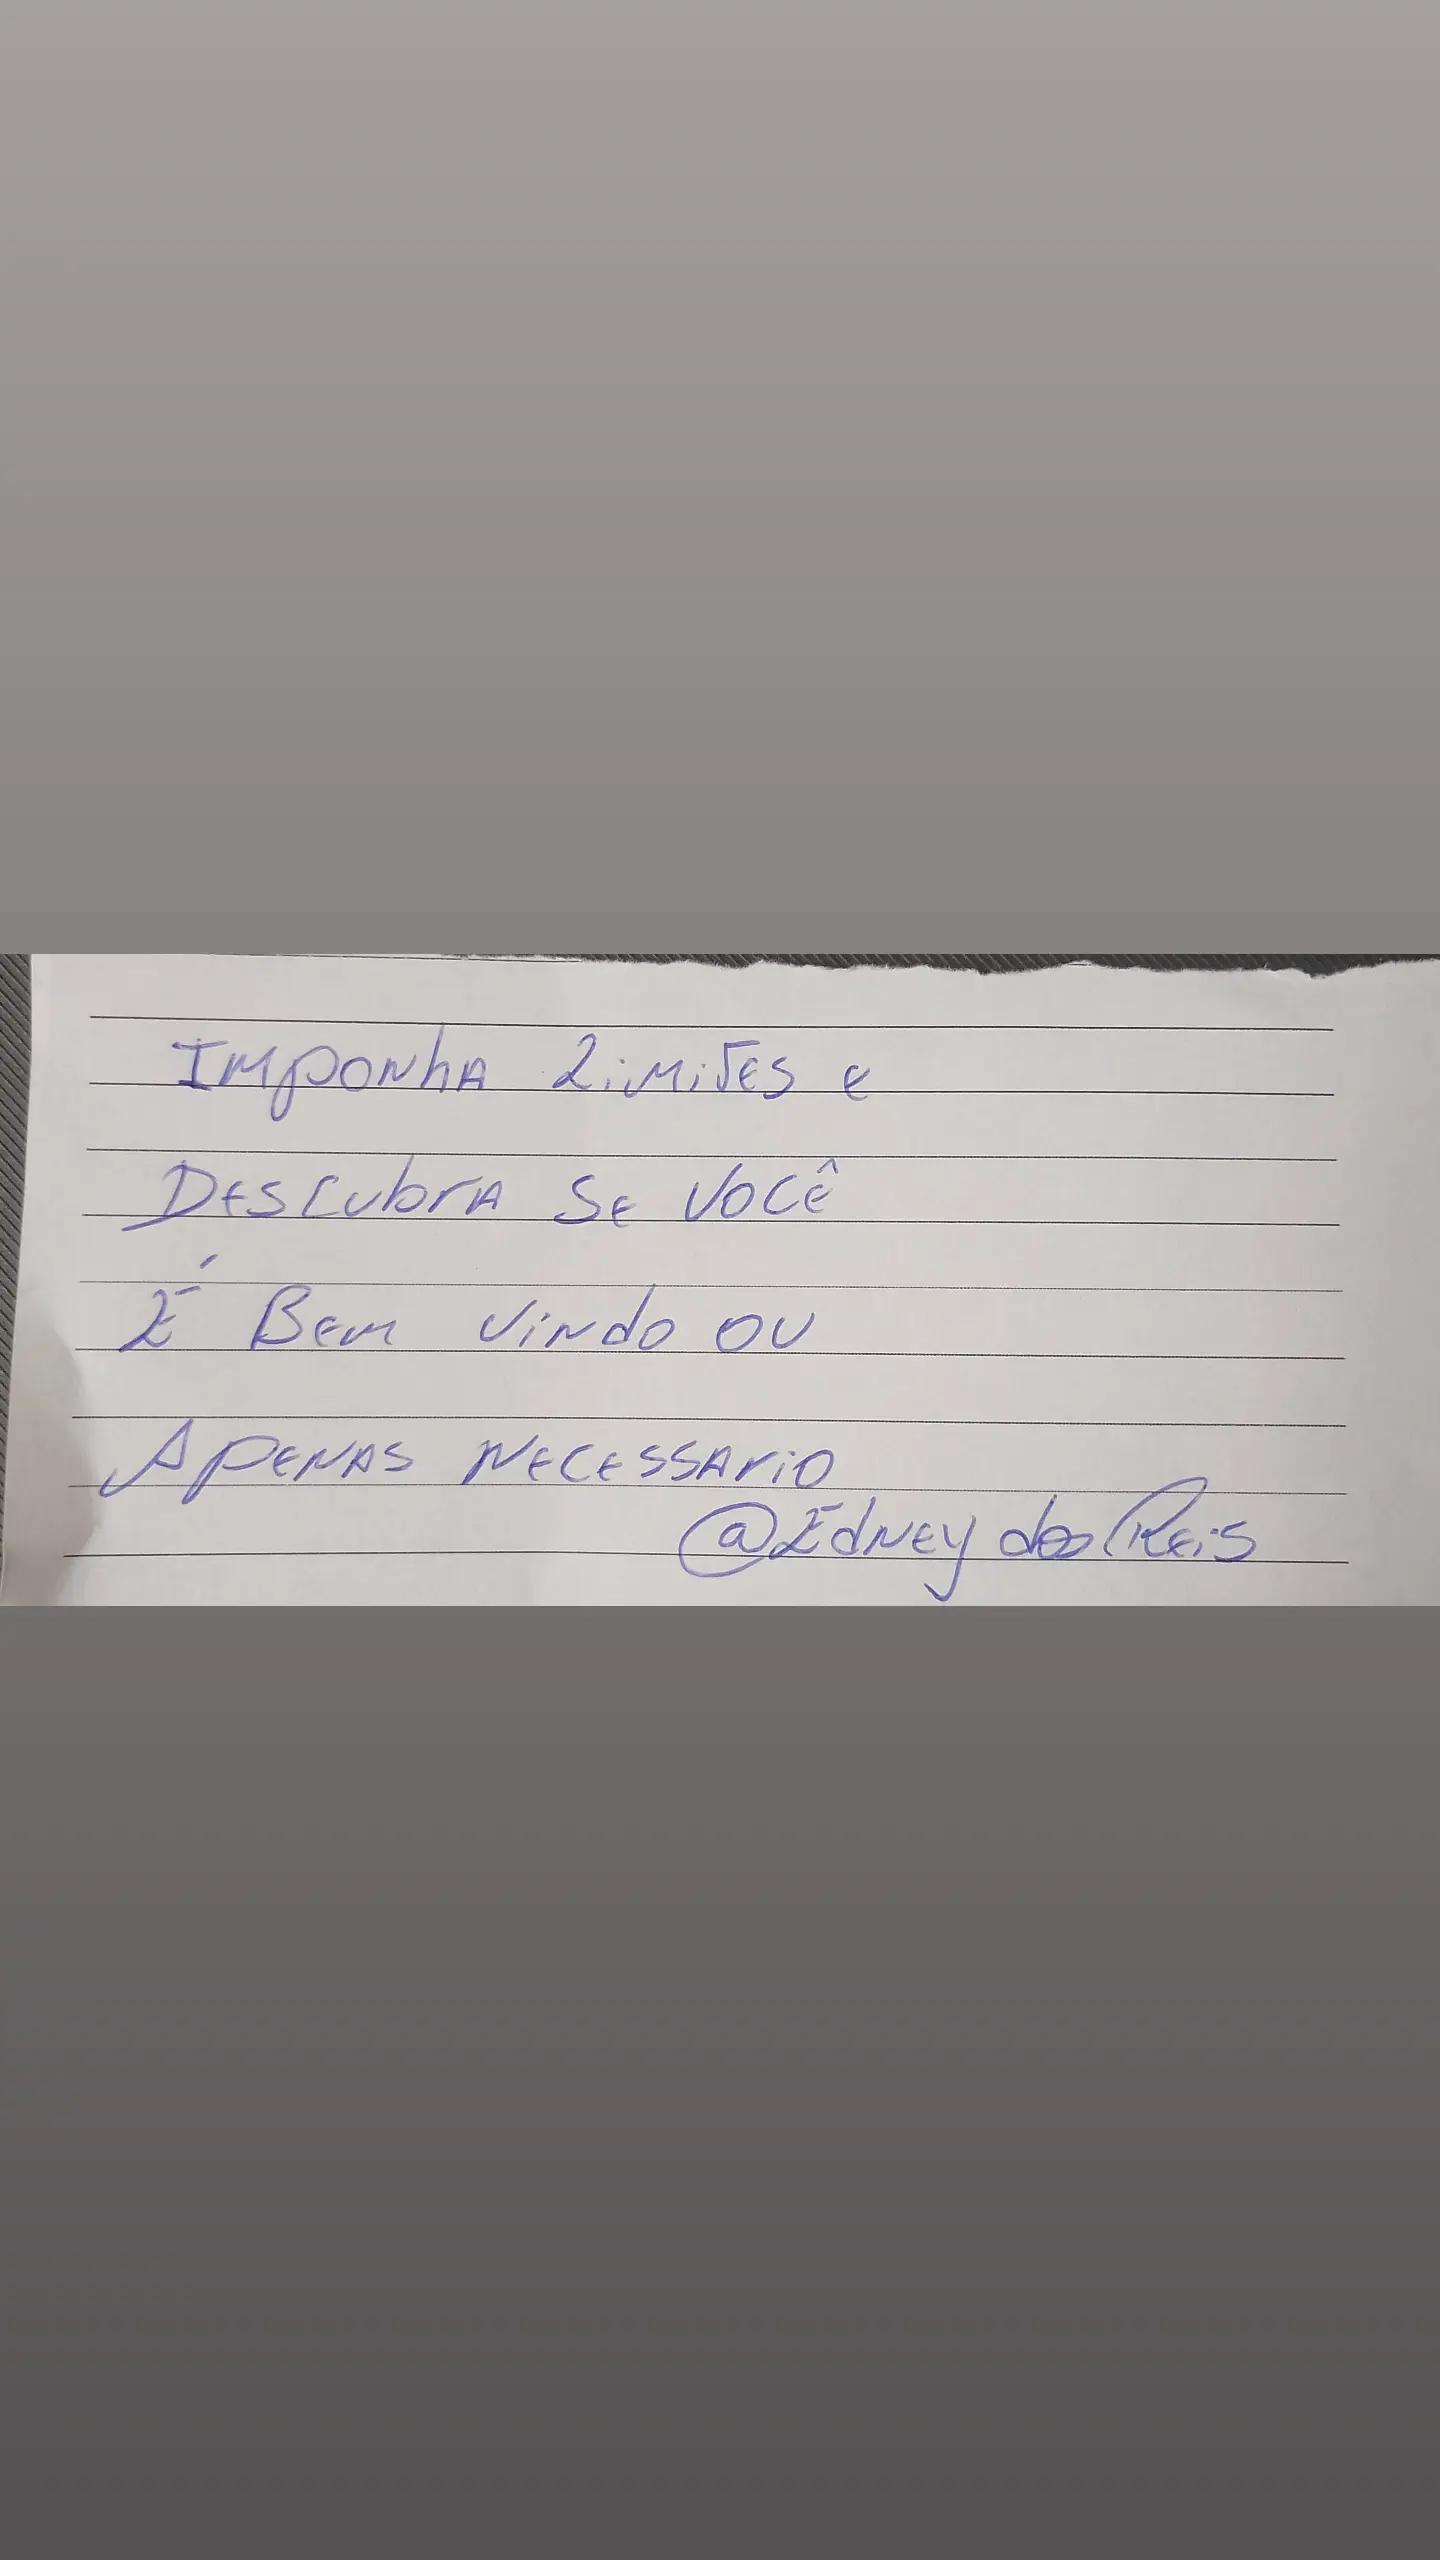 Imponha Limites e
Descubra se você
É Bem vindo ou
Apenas necessario
@Edney dos Reis